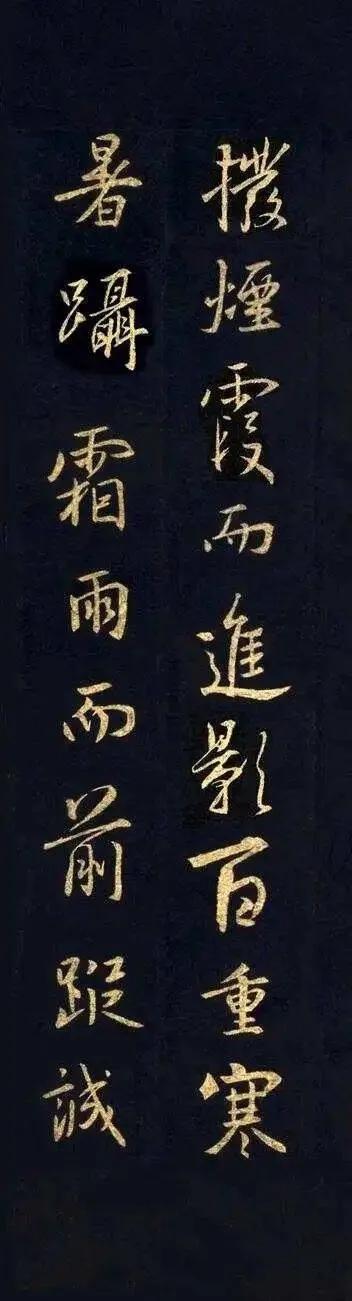 撥煙霞而進影百重寒
暑躡霜雨而前蹤誠